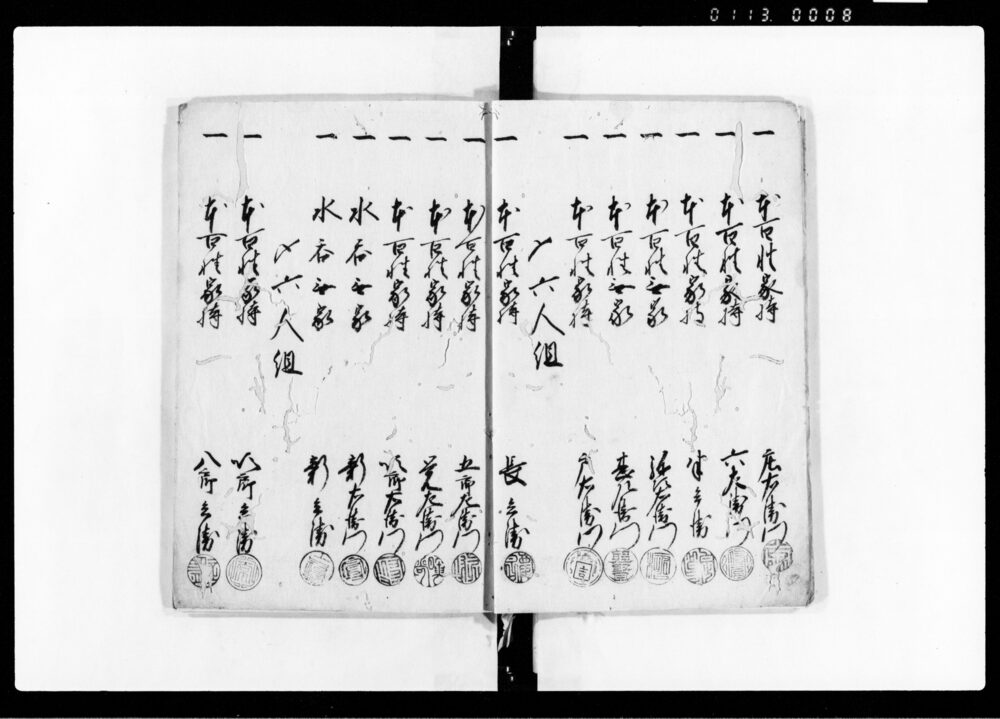 0113. 0008
一 本百姓家持 庄右衛門
一 本百姓家持 六左衛門
一 本百姓家持 半兵衛
一 本百姓無家 右衛門
一 本百姓無家 衛門
一 本百姓家持 右衛門
〆六人組
一 本百姓家持 長兵衛
一 本百姓家持 五郎左衛門
一 本百姓家持 覚左衛門
一 本百姓家持 次郎右衛門
一 水呑無家 新右衛門
一 水呑無家 新兵衛
〆六人組
一 本百姓家持 次郎兵衛
一 本百姓家持 八郎兵衛